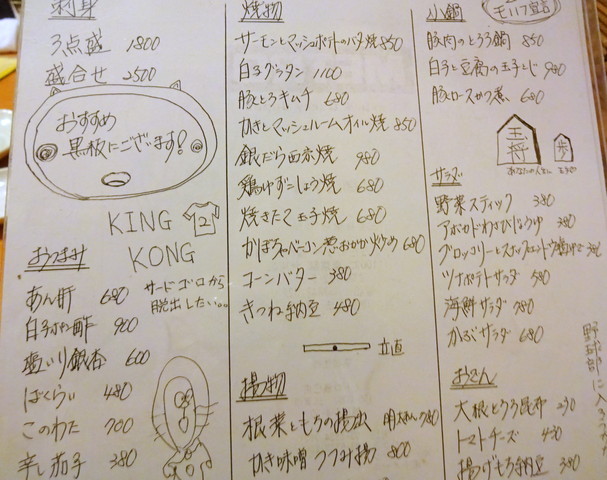 刺身
3点盛 1800
盛合せ 2500
おすすめ
黒板にございます!
KING 2
KONG
サードゴロから
脱出したい…
おつまみ
あん肝 680
白子ポン酢 900
塩いり銀杏 600
ばくらい 480
このわた 700
辛し茄子 380
焼物
サーモンとマッシュポテトのバタ焼 850
白子グラタン 1100
豚とろキムチ 680
かきとマッシュルームオイル焼 850
銀だら西京焼 980
鶏ゆずこしょう焼 680
焼きたて玉子焼 680
かぼちゃベーコン 炒め 680
コーンバター 380
きつね納豆 480
立直
揚物
根菜ともちの揚出 780
かき味噌つつみ揚 800
小鍋
豚肉のとろろ鍋 850
白子と豆腐の玉子とじ 980
豚ロースかつ煮 680
王将
歩
サラダ
野菜スティック 380
アボカドわさびじょうゆ 380
ブロッコリーと 380
ツナポテトサラダ 580
海鮮サラダ 780
かぶサラダ 680
おでん
大根とろろ昆布 230
トマトチーズ 420
揚げもち納豆 380
野球部に入